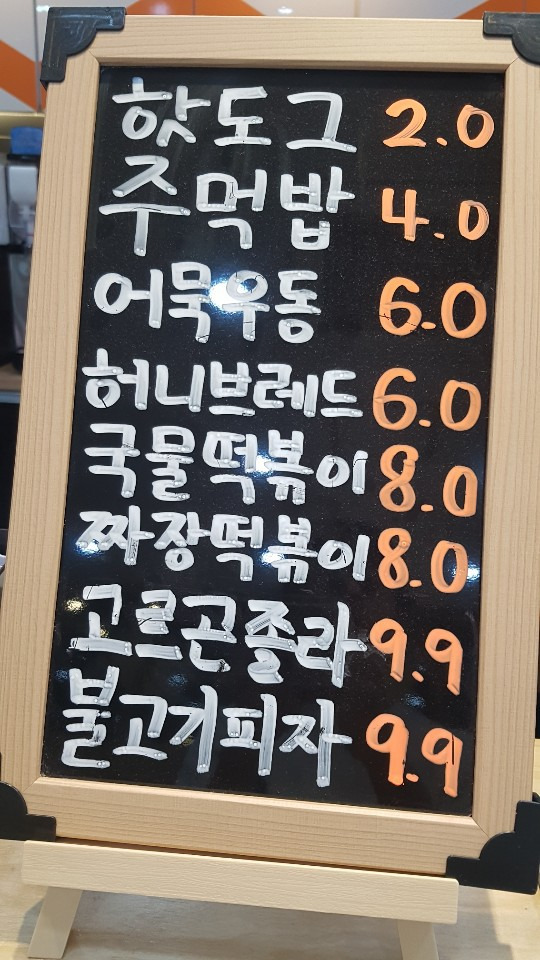 핫도그 2.0
주먹밥 4.0
어묵우동 6.0
허니브레드 6.0
국물떡볶이 8.0
짜장떡볶이 8.0
고르곤졸라 9.9
불고기피자 9.9